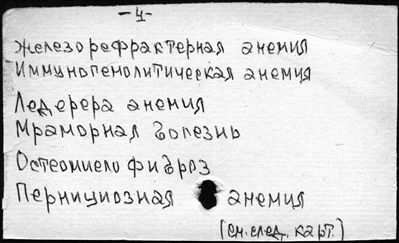 -4-
Железорефрактерная анемия
Иммуногемолитическая анемия
Ледерера анемия
Мраморная болезнь
Остеомиелофиброз
Пернициозная анемия
(см. след. карт.)